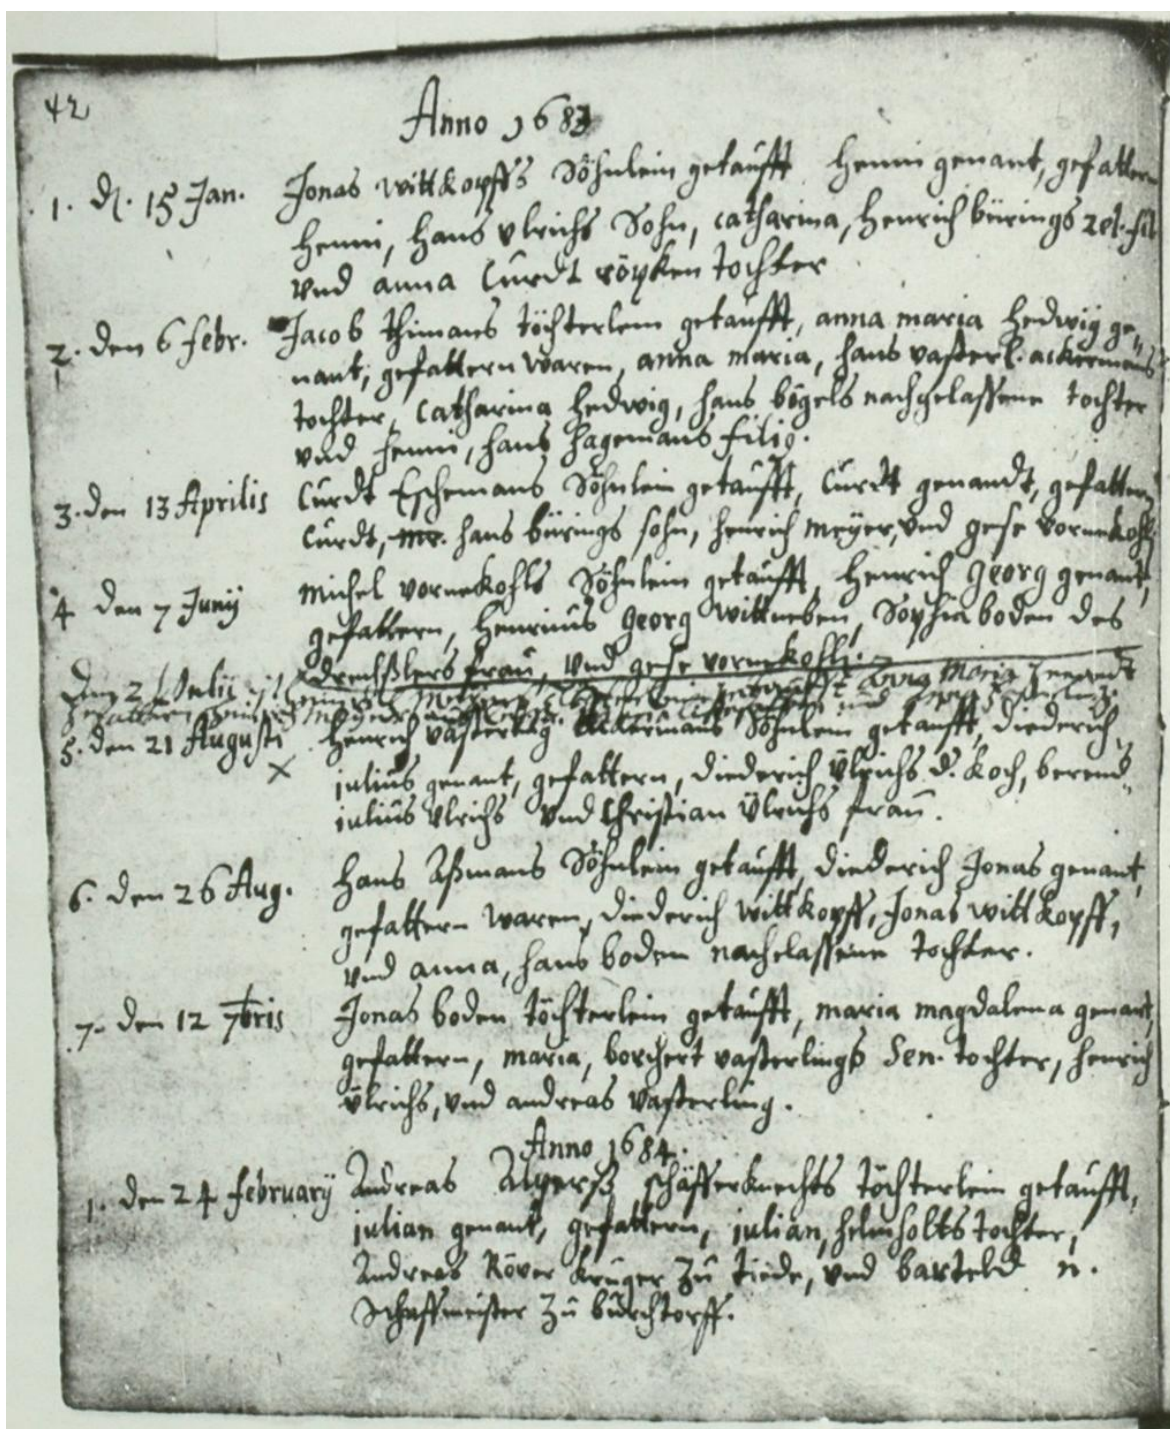 42
Anno 1683
1. d. 15 Jan. Jonas Wittkopffs Söhnlein getaufft Henni genant, gefattern
Henni, Hans Ulrichs Sohn, Catharina, Henrich bürings rel. fil
und anna Curdt röpken tochter
2. den 6 Febr. Jacob Thimans töchterlein getaufft, anna maria Hedwig ge„
nant, gefattern waren, anna maria, hans vasterl. ackermans
tochter, Catharina Hedwig, hans bögels nachgelassene tochter
und henni, hans hagemans filiq.
3. den 13 Aprilis Curdt Eschemans Söhnlein getaufft, Curdt genandt, gefattern
Curdt, hans bürings sohn, henrich meÿer, und gese vornekohls
4 den 7 Junÿ michel vornekohls Söhnlein getaufft, Henrich Georg genant,
gefattern, Henricus Georg Wittneben, Sophia boden des
drechßlers frau, und gese vornekohls.
den 2 Julii töchterlein getaufft maria genandt
gefattern
5. den 21 Augusti Henrich vasterling Ackermans Söhnlein getaufft, diederich
julius genant, gefattern, diederich Ülrichs d. Koch, berend
julius Ulrichs und Christian Ülrichs frau.
6. den 26 Aug. Hans Aßmans Söhnlein getaufft, diederich Jonas genant,
gefattern waren, diederich Wittkopff, Jonas Wittkopff,
und anna, hans boden nachelassene tochter.
7. den 12 7bris Jonas boden töchterlein getaufft, maria magdalena genant,
gefattern, maria, borchert vasterlings Sen. tochter, henrich
Ülrichs, und andreas vasterling.
Anno 1684.
1. den 24 februarÿ Andreas schäfferknechts töchterlein getaufft,
julian genant, gefattern, julian, helmholts tochter,
Andreas Röver Krüger zu tiede, und barteld n.
Schaffmeister zu burchtorff.